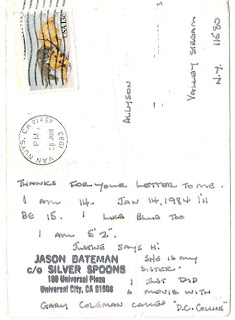 USA 13c
VAN NUYS, CA
PM
1983
ALLYSON
VALLEY STREAM
N.Y. 11580
THANKS FOR YOUR LETTER TO ME.
I AM 14. JAN 14, 1984 I'll
BE 15. I LIKE BLUE TOO
I AM 5'2".
JUSTINE SAYS Hi.
SHE IS MY
SISTER.
I JUST DID
A MOVIE WITH
GARY COLEMAN CALLED "D.C. COLLINS"
JASON BATEMAN
c/o SILVER SPOONS
100 Universal Plaza
Universal City, CA 91608